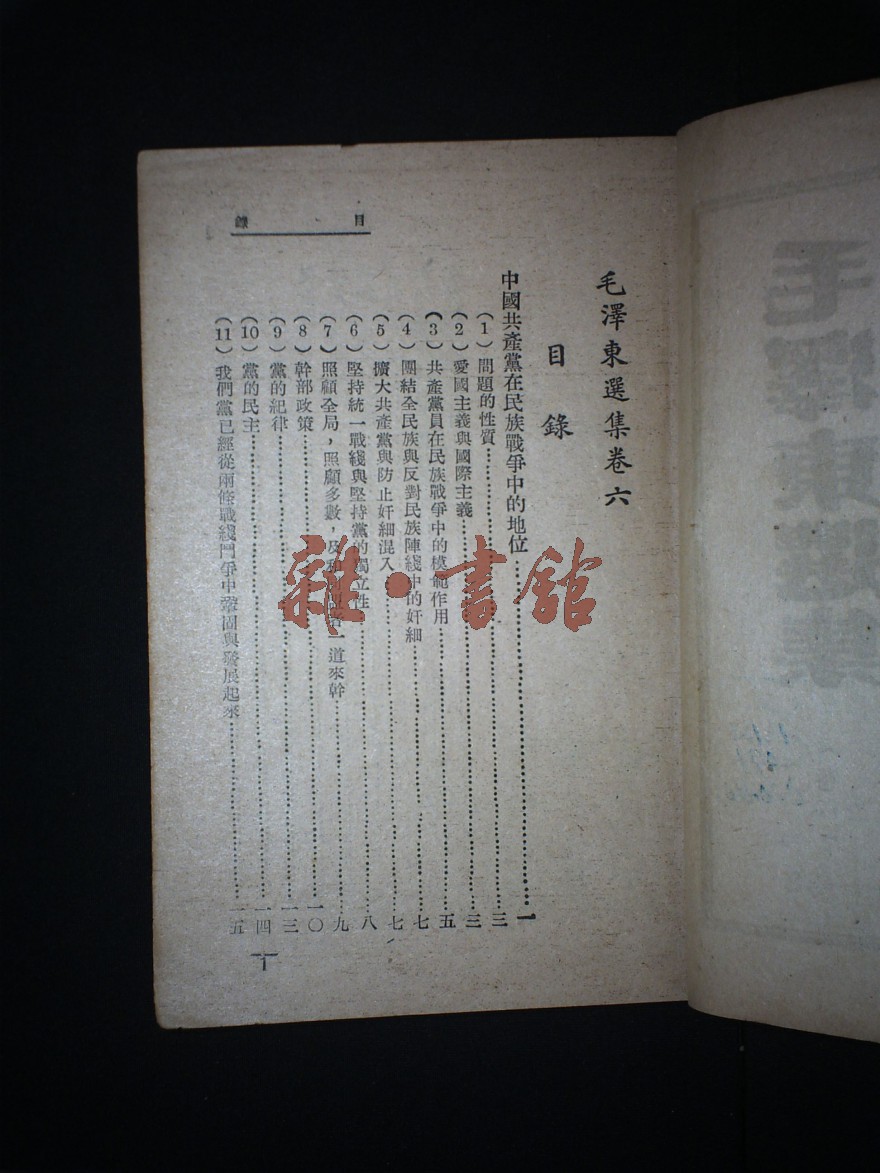 毛澤東選集卷六
目錄
中國共產黨在民族戰爭中的地位……一
(1) 問題的性質……三
(2) 愛國主義與國際主義……三
(3) 共產黨員在民族戰爭中的模範作用……五
(4) 團結全民族與反對民族陣綫中的奸細……七
(5) 擴大共產黨與防止奸細混入……七
(6) 堅持統一戰綫與堅持黨的獨立性……八
(7) 照顧全局，照顧多數，及和同盟者一道來幹……九
(8) 幹部政策……一〇
(9) 黨的紀律……一三
(10) 黨的民主……一四
(11) 我們黨已經從兩條戰綫鬥爭中鞏固與發展起來……一五
目錄
1
雜·書館